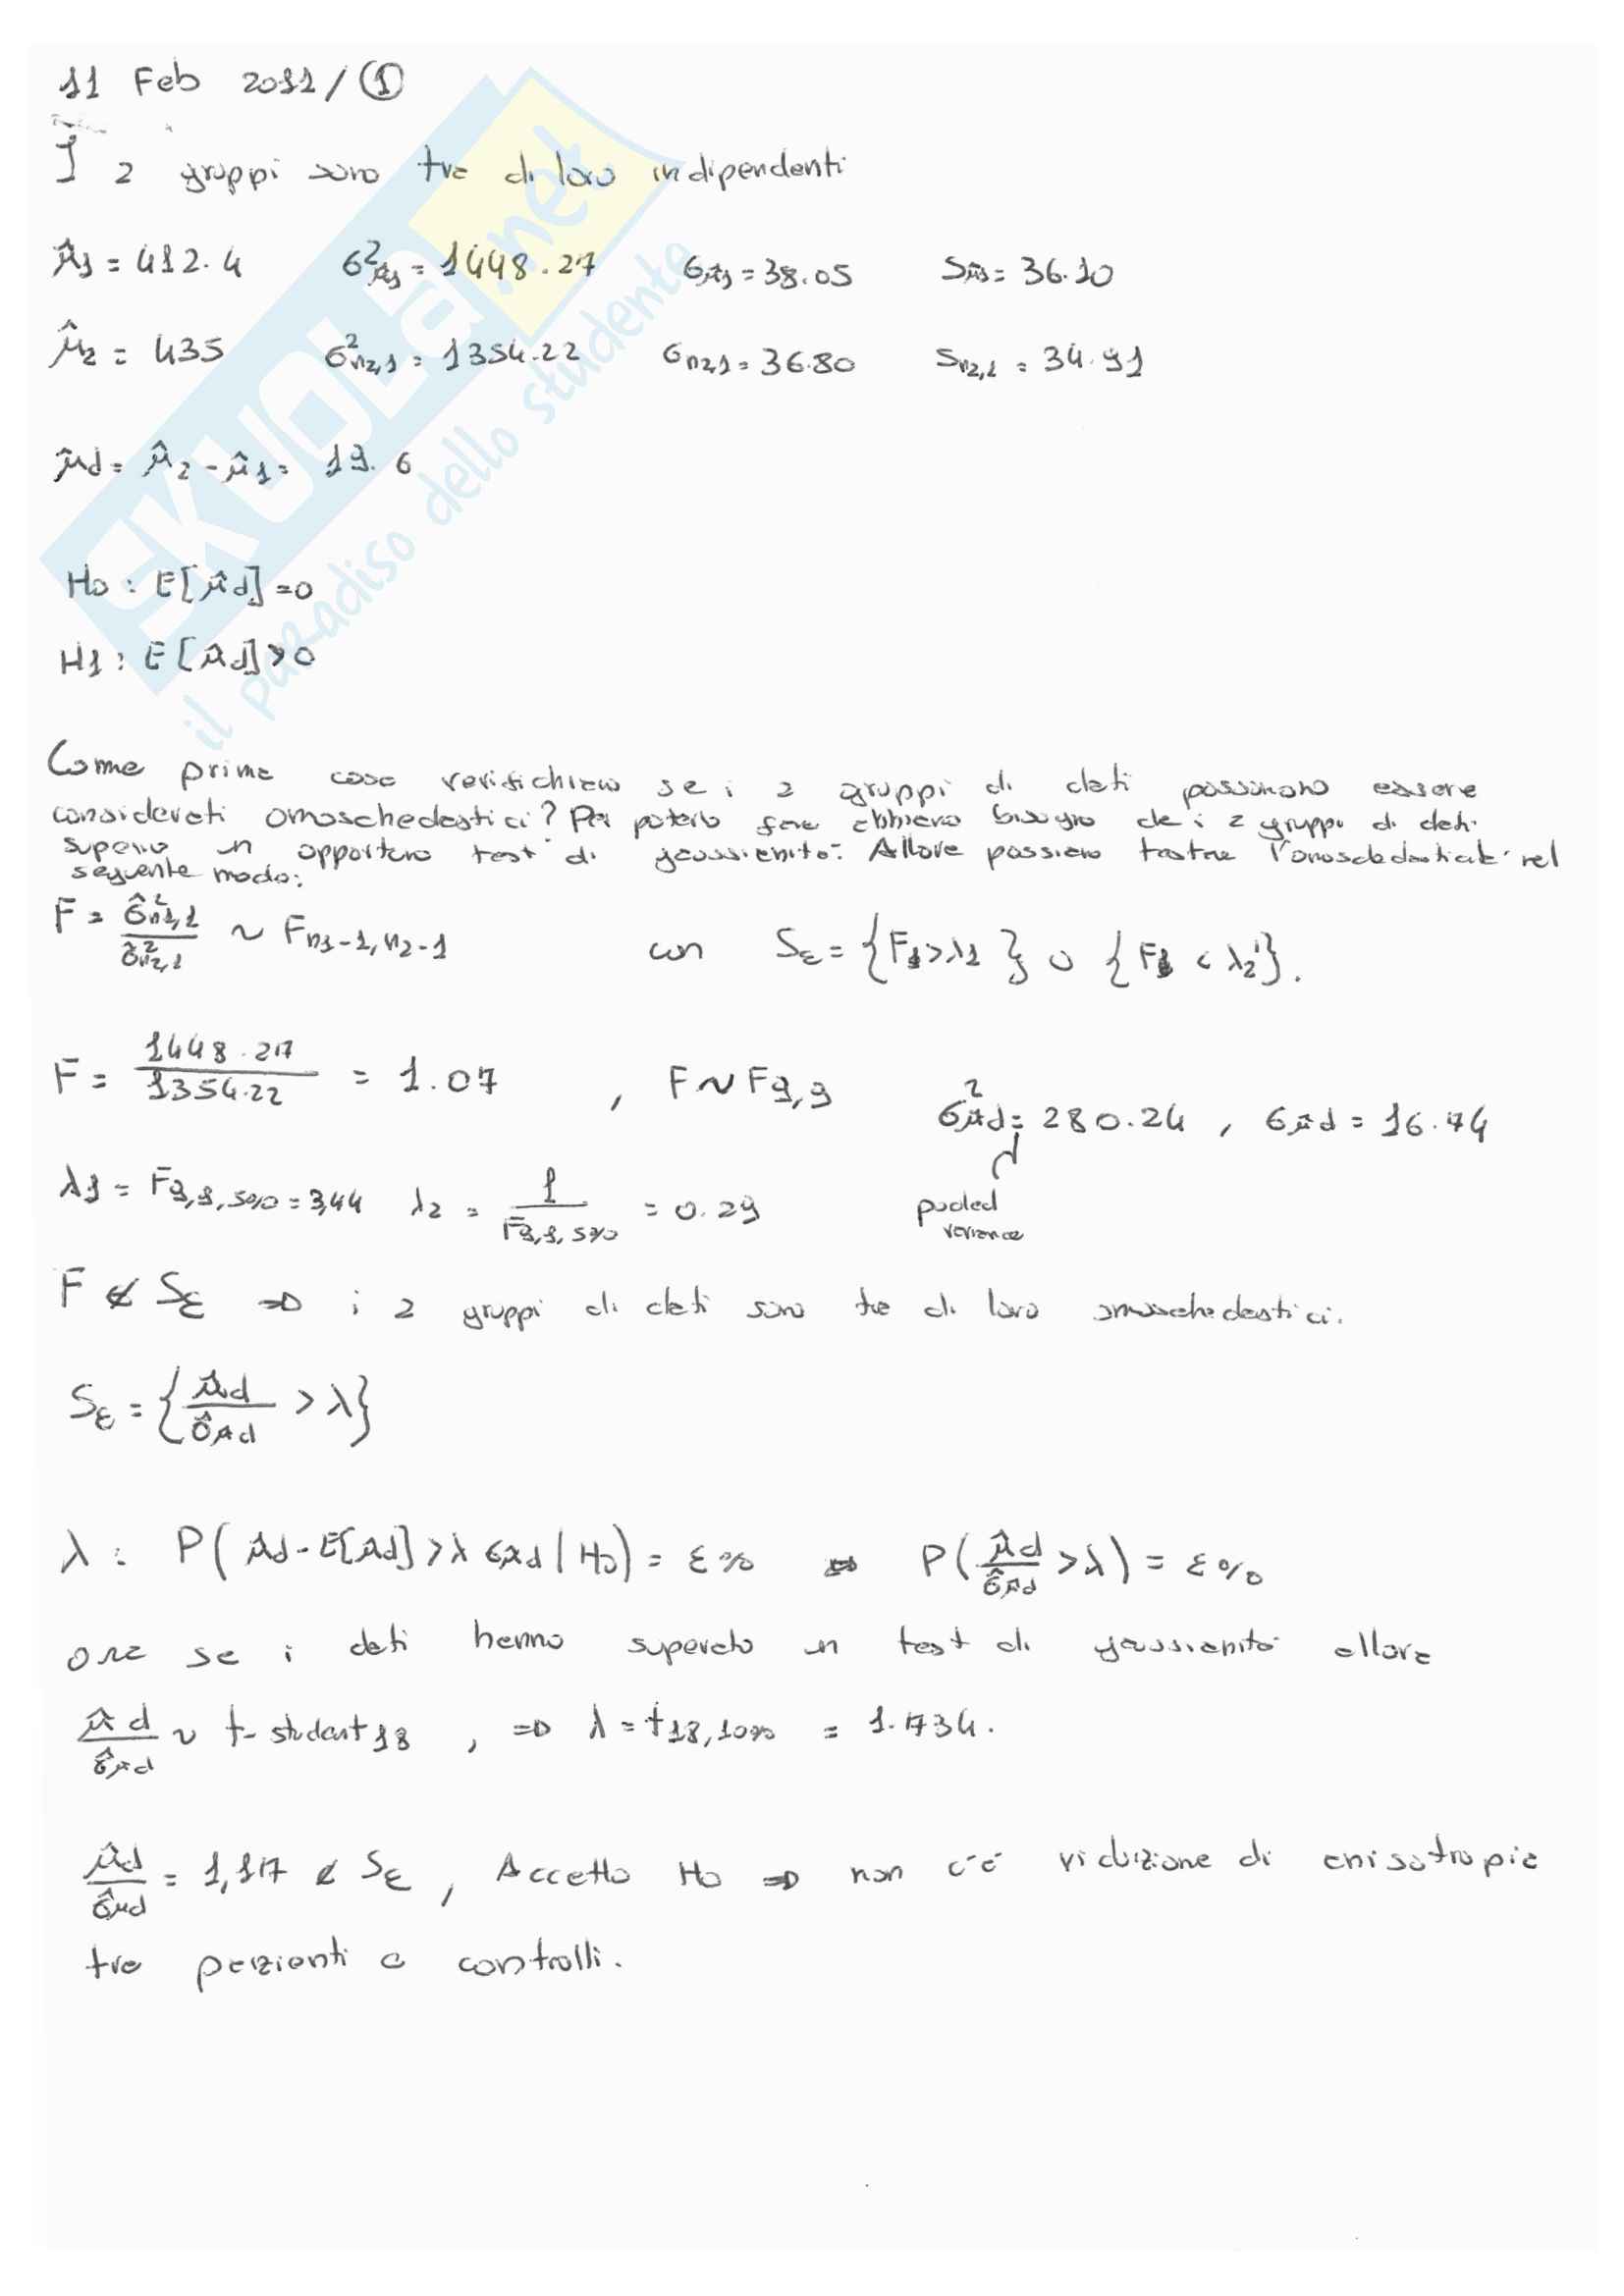 11 Feb 2011 / ①
I 2 gruppi sono tra di loro indipendenti
μ̂1 = 412.4 σ²μ̂1 = 1448.27 σμ̂1 = 38.05 Sμ̂1 = 36.10
μ̂2 = 435 σ²n2,1 = 1354.22 σn2,1 = 36.80 Sn2,1 = 34.91
μ̂d = μ̂2 - μ̂1 = 19.6
H0 : E[μ̂d] = 0
H1 : E[μ̂d] > 0
Come prima cosa verifichiamo se i 2 gruppi di dati possono essere
considerati omoschedastici? Per poterlo fare abbiamo bisogno che i 2 gruppi di dati
superino un opportuno test di gaussianità. Allora possiamo testare l'omoschedasticità nel
seguente modo:
F = σ̂²n1,1 / σ̂²n2,1 ~ Fn1-1, n2-1 con Sε = {F1 > λ1} o {F1 < λ2}.
F = 1448.27 / 1354.22 = 1.07 , F ~ F9,9 σ²μ̂d = 280.24 , σμ̂d = 16.74
pooled
variance
λ1 = F9,9,5% = 3,44 λ2 = 1 / F9,9,5% = 0.29
F ∉ Sε => i 2 gruppi di dati sono tra di loro omoschedastici.
Sε = {μ̂d / σ̂μ̂d > λ}
λ : P(μ̂d - E[μ̂d] > λ σμ̂d | H0) = ε% <=> P(μ̂d / σ̂μ̂d > λ) = ε%
ora se i dati hanno superato un test di gaussianità allora
μ̂d / σ̂μ̂d ~ t-student18 , => λ = t18,10% = 1.734.
μ̂d / σ̂μ̂d = 1,117 ∉ Sε , Accetto H0 => non c'è riduzione di anisotropia
tra pazienti e controlli.
SKUOLA.net
il paradiso dello studente